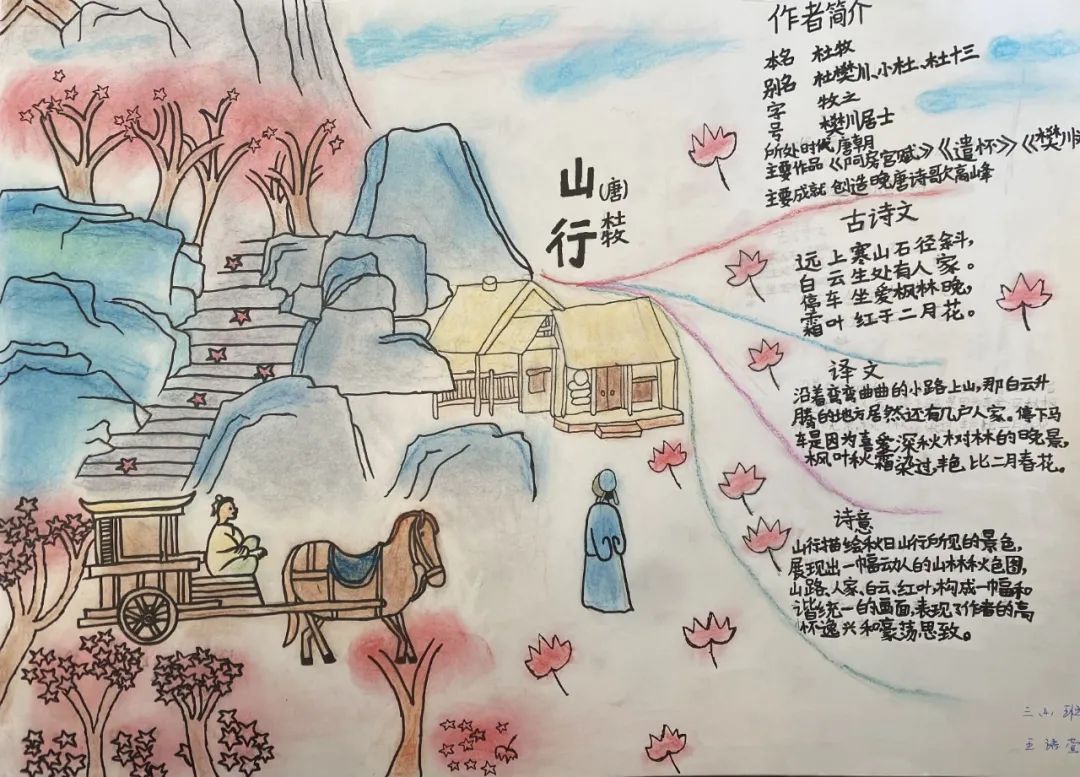 山行
(唐)
杜牧
作者简介
本名 杜牧
别名 杜樊川、小杜、杜十三
字 牧之
号 樊川居士
所处时代 唐朝
主要作品《阿房宫赋》《遣怀》《樊川
主要成就 创造晚唐诗歌高峰
古诗文
远上寒山石径斜,
白云生处有人家。
停车坐爱枫林晚,
霜叶红于二月花。
译文
沿着弯弯曲曲的小路上山,那白云升
腾的地方居然还有几户人家。停下马
车是因为喜爱深秋树林的晚景,
枫叶秋霜染过,艳比二月春花。
诗意
山行描绘秋日山行所见的景色,
展现出一幅动人的山林秋色图,
山路、人家、白云、红叶,构成一幅和
谐统一的画面,表现了作者的高
怀逸兴和豪荡思致。